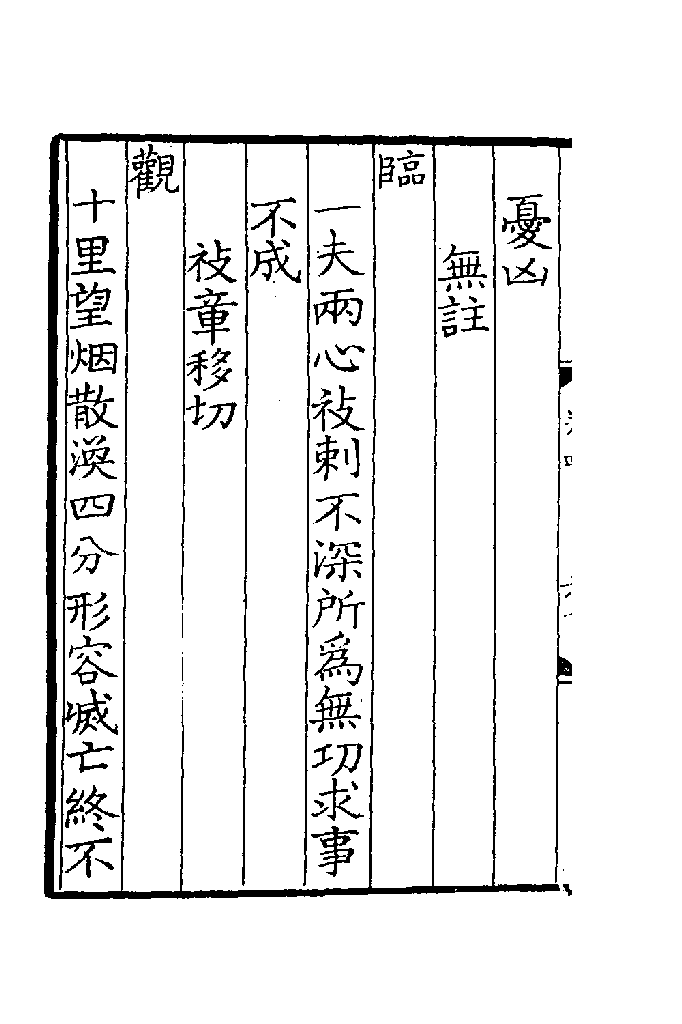 憂凶
無註
臨
一夫兩心衼刺不深所爲無功求事
不成
衼章移切
觀
十里望烟散渙四分形容滅亡終不